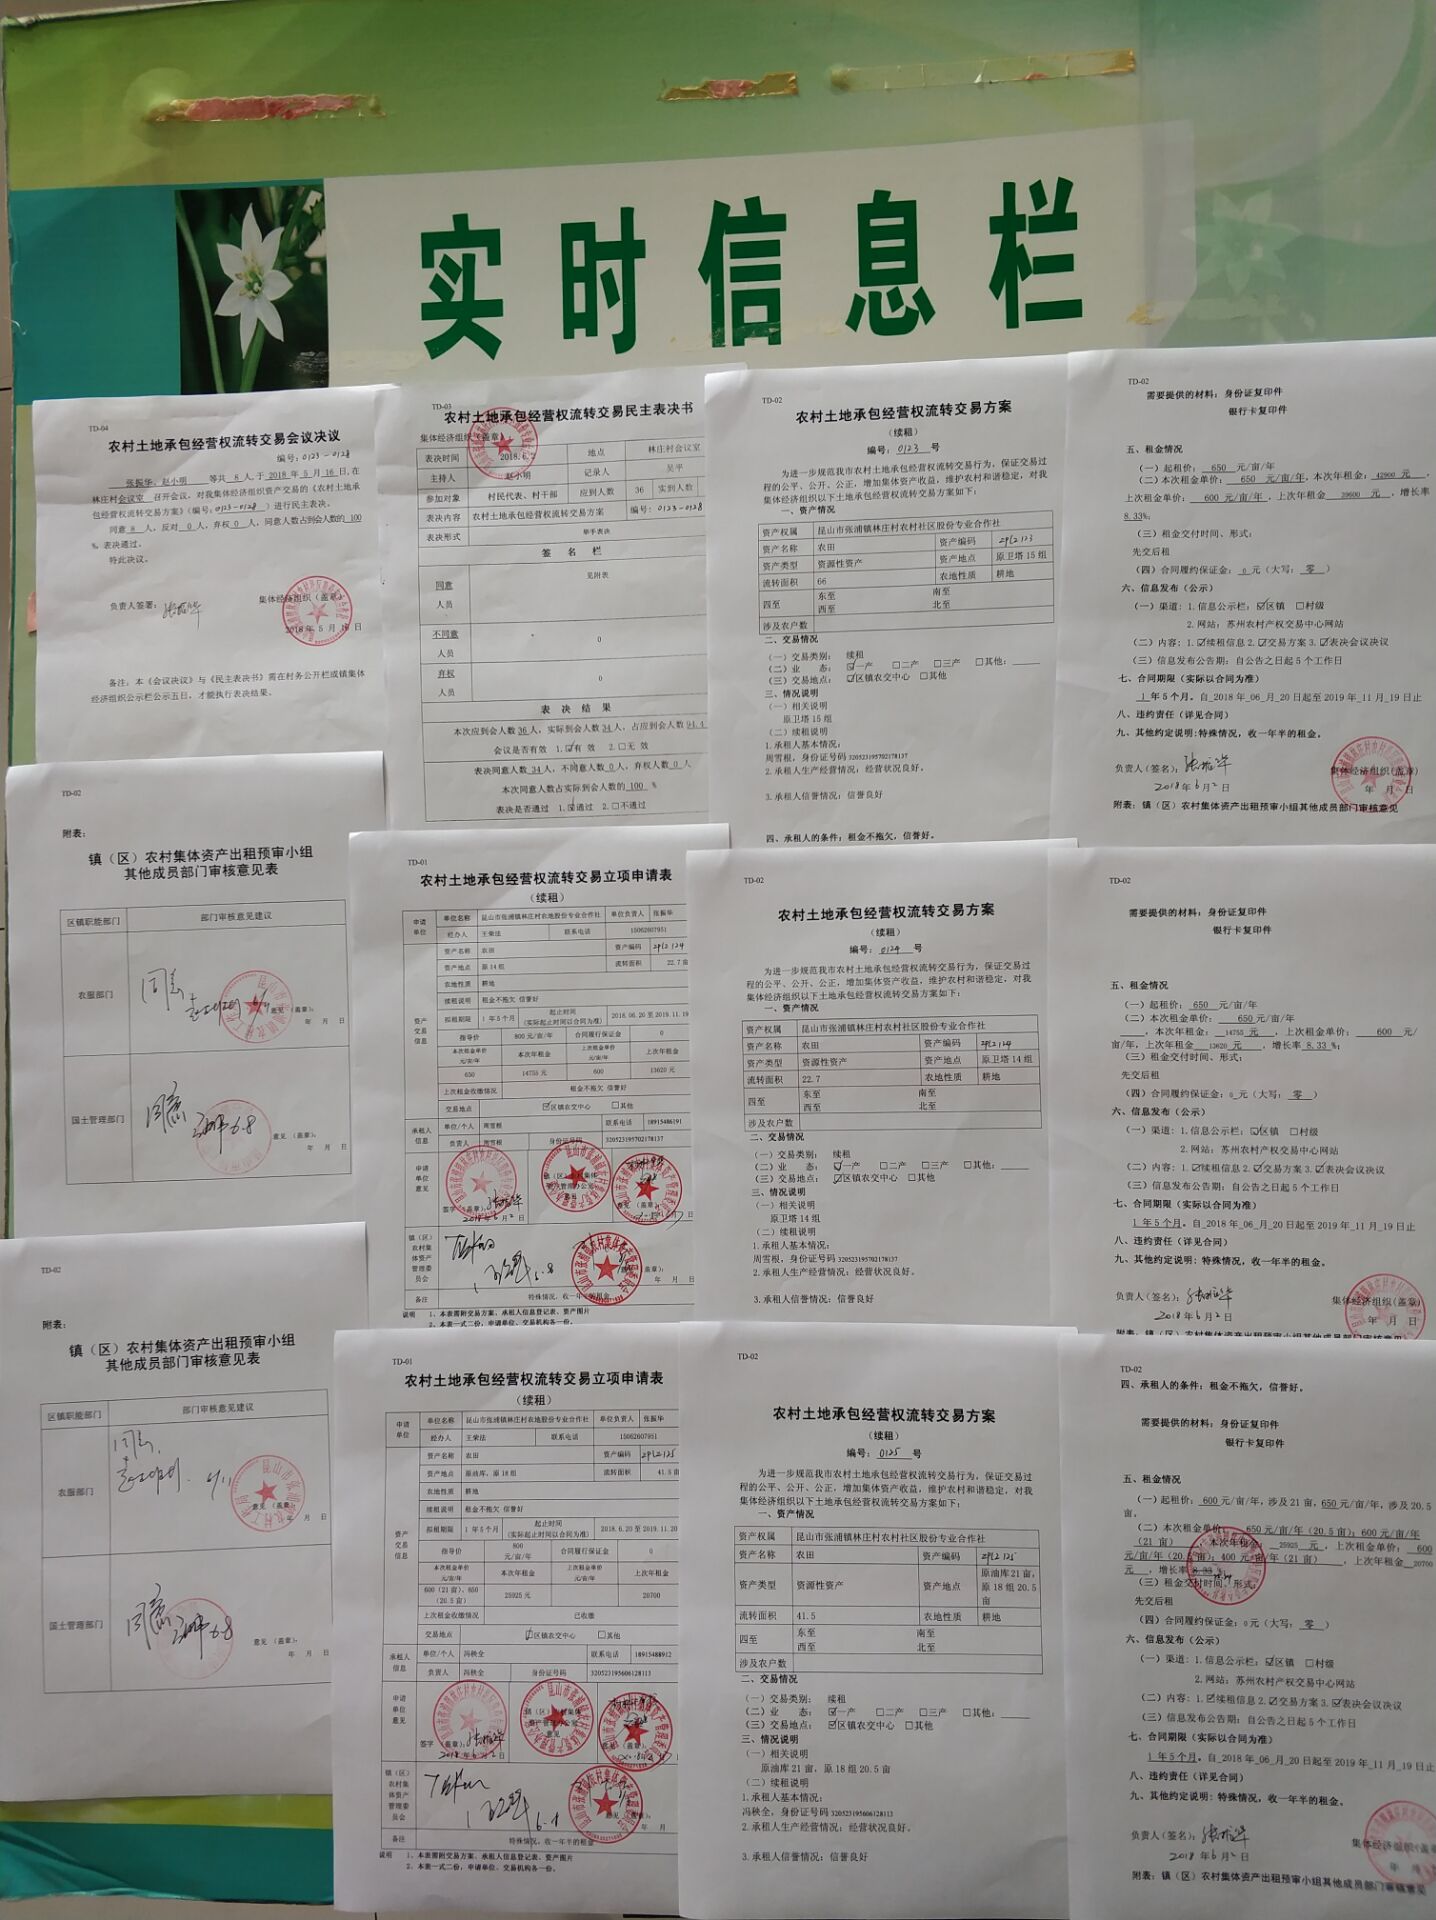 实时信息栏
TD-04
农村土地承包经营权流转交易会议决议
编号:0123-0128
张振华、赵小明 等共 8 人,于 2018 年 5 月 16 日,在
林庄村会议室 召开会议,对我集体经济组织资产交易的《农村土地承
包经营权流转交易方案》(编号:0123-0128)进行民主表决。
同意 8 人,反对 0 人,弃权 0 人,同意人数占到会人数的 100
%,表决通过。
特此决议。
负责人签署:
集体经济组织(盖章)
2018 年 5 月 16 日
备注:本《会议决议》与《民主表决书》需在村务公开栏或镇集体
经济组织公示栏公示五日,才能执行表决结果。
TD-03
农村土地承包经营权流转交易民主表决书
集体经济组织(盖章)
表决时间 2018.6.2 地点 林庄村会议室
主持人 赵小明 记录人 吴平
参加对象 村民代表、村干部 应到人数 36 实到人数
表决内容 农村土地承包经营权流转交易方案 编号:0123-0128
表决形式 举手表决
签 名 栏
同意
人员
见附表
不同意
人员
0
弃权
人员
0
表 决 结 果
本次应到会人数36人,实际到会人数34人,占应到会人数 94.4
会议是否有效 1.☑有 效 2.□无 效
表决同意人数34人,不同意人数0人,弃权人数0人
本次同意人数占实际到会人数的 100 %
表决是否通过 1.☑通过 2.□不通过
TD-02
农村土地承包经营权流转交易方案
(续租)
编号:0123 号
为进一步规范我市农村土地承包经营权流转交易行为,保证交易过
程的公平、公开、公正,增加集体资产收益,维护农村和谐稳定,对我
集体经济组织以下土地承包经营权流转交易方案如下:
一、资产情况
资产权属 昆山市张浦镇林庄村农村社区股份专业合作社
资产名称 农田 资产编码
资产类型 资源性资产 资产地点 原卫塔 15 组
流转面积 66 农地性质 耕地
四至 东至 南至
西至 北至
涉及农户数
二、交易情况
(一)交易类别: 续租
(二)业 态: ☑一产 □二产 □三产 □其他:
(三)交易地点: ☑区镇农交中心 □其他
三、情况说明
(一)相关说明
原卫塔 15 组
(二)续租说明
1.承租人基本情况:
周雪根,身份证号码 320523195702178137
2.承租人生产经营情况:经营状况良好。
3.承租人信誉情况:信誉良好
四、承租人的条件:租金不拖欠,信誉好。
TD-02
需要提供的材料:身份证复印件
银行卡复印件
五、租金情况
(一)起租价: 650 元/亩/年
(二)本次租金单价: 650 元/亩/年,本次年租金: 42900 元,
上次租金单价: 600 元/亩/年,上次年租金 39600 元,增长率
8.33%;
(三)租金交付时间、形式:
先交后租
(四)合同履约保证金: 0 元(大写: 零 )
六、信息发布(公示)
(一)渠道:1.信息公示栏:☑区镇 □村级
2.网站:苏州农村产权交易中心网站
(二)内容:1.☑续租信息 2.☑交易方案 3.☑表决会议决议
(三)信息发布公告期:自公告之日起 5 个工作日
七、合同期限(实际以合同为准)
1 年 5 个月。自 2018 年 06 月 20 日起至 2019 年 11 月 19 日止
八、违约责任(详见合同)
九、其他约定说明:特殊情况,收一年半的租金。
负责人(签名): 集体经济组织(盖章)
2018 年 6 月 2 日 年 月 日
附表:镇(区)农村集体资产出租预审小组其他成员部门审核意见
TD-02
附表:
镇(区)农村集体资产出租预审小组
其他成员部门审核意见表
区镇职能部门 部门审核意见建议
农服部门 同意
意见(盖章):
年 月 日
国土管理部门 同意 6.8
意见(盖章):
年 月 日
TD-01
农村土地承包经营权流转交易立项申请表
(续租)
申请单位 单位名称 昆山市张浦镇林庄村农地股份专业合作社 单位负责人 张振华
经办人 王荣法 联系电话 15062607951
资产交易信息
资产名称 农田 资产编码
资产地点 原 14 组 流转面积 22.7 亩
农地性质 耕地
续租说明 租金不拖欠 信誉好
拟租期限 1 年 5 个月 起止时间(实际起止时间以合同为准) 2018.06.20 至 2019.11.19
指导价 800 元/亩/年 合同履行保证金 0
本次租金单价 元/亩/年 本次年租金 上次租金单价 元/亩/年 上次年租金
650 14755 元 600 13620 元
上次租金收缴情况 租金不拖欠 信誉好
交易地点 ☑区镇农交中心 □其他
承租人信息 单位/个人 周雪根 联系电话 18915486191
负责人 周雪根 身份证号码 320523195702178137
申请单位意见
签字(盖章):
2018 年 6 月 2 日
镇(区)农村集体资产管理委员会
6.8
年 月 日
备注 特殊情况,收一年半的租金
说明 1、本表需附交易方案、承租人信息登记表、资产图片
2、本表一式二份,申请单位、交易机构各一份。
TD-02
农村土地承包经营权流转交易方案
(续租)
编号:0124 号
为进一步规范我市农村土地承包经营权流转交易行为,保证交易过
程的公平、公开、公正,增加集体资产收益,维护农村和谐稳定,对我
集体经济组织以下土地承包经营权流转交易方案如下:
一、资产情况
资产权属 昆山市张浦镇林庄村农村社区股份专业合作社
资产名称 农田 资产编码
资产类型 资源性资产 资产地点 原卫塔 14 组
流转面积 22.7 农地性质 耕地
四至 东至 南至
西至 北至
涉及农户数
二、交易情况
(一)交易类别: 续租
(二)业 态: ☑一产 □二产 □三产 □其他:
(三)交易地点: ☑区镇农交中心 □其他
三、情况说明
(一)相关说明
原卫塔 14 组
(二)续租说明
1.承租人基本情况:
周雪根,身份证号码 320523195702178137
2.承租人生产经营情况:经营状况良好。
3.承租人信誉情况:信誉良好
TD-02
需要提供的材料:身份证复印件
银行卡复印件
五、租金情况
(一)起租价: 650 元/亩/年
(二)本次租金单价: 650 元/亩/年
,本次年租金: 14755 元 ,上次租金单价: 600 元/
亩/年,上次年租金 13620 元 ,增长率 8.33 %;
(三)租金交付时间、形式:
先交后租
(四)合同履约保证金: 0 元(大写: 零 )
六、信息发布(公示)
(一)渠道:1.信息公示栏:☑区镇 □村级
2.网站:苏州农村产权交易中心网站
(二)内容:1.☑续租信息 2.☑交易方案 3.☑表决会议决议
(三)信息发布公告期:自公告之日起 5 个工作日
七、合同期限(实际以合同为准)
1 年 5 个月。自 2018 年 06 月 20 日起至 2019 年 11 月 19 日止
八、违约责任(详见合同)
九、其他约定说明:特殊情况,收一年半的租金。
负责人(签名): 集体经济组织(盖章)
2018 年 6 月 2 日 年 月 日
附表:镇(区)农村集体资产出租预审小组其他成员部门审核意见
TD-02
附表:
镇(区)农村集体资产出租预审小组
其他成员部门审核意见表
区镇职能部门 部门审核意见建议
农服部门 同意
意见(盖章):
年 月 日
国土管理部门 同意 6.8
意见(盖章):
年 月 日
TD-01
农村土地承包经营权流转交易立项申请表
(续租)
申请单位 单位名称 昆山市张浦镇林庄村农地股份专业合作社 单位负责人 张振华
经办人 王荣法 联系电话 15062607951
资产交易信息
资产名称 农田 资产编码
资产地点 原油库,原 18 组 流转面积 41.5 亩
农地性质 耕地
续租说明 租金不拖欠 信誉好
拟租期限 1 年 5 个月 起止时间(实际起止时间以合同为准) 2018.6.20 至 2019.11.20
指导价 800 元/亩/年 合同履行保证金 0
本次租金单价 元/亩/年 本次年租金 上次租金单价 元/亩/年 上次年租金
600(21 亩)、650(20.5 亩) 25925 元 20700
上次租金收缴情况 已收缴
交易地点 ☑区镇农交中心 □其他
承租人信息 单位/个人 冯秧全 联系电话 18915488912
负责人 冯秧全 身份证号码 320523195606128113
申请单位意见
签字(盖章):
2018 年 6 月 2 日
镇(区)农村集体资产管理委员会
年 月
备注 特殊情况,收一年半的租金
说明 1、本表需附交易方案、承租人信息登记表、资产图片
2、本表一式二份,申请单位、交易机构各一份。
TD-02
农村土地承包经营权流转交易方案
(续租)
编号:0125 号
为进一步规范我市农村土地承包经营权流转交易行为,保证交易过
程的公平、公开、公正,增加集体资产收益,维护农村和谐稳定,对我
集体经济组织以下土地承包经营权流转交易方案如下:
一、资产情况
资产权属 昆山市张浦镇林庄村农村社区股份专业合作社
资产名称 农田 资产编码
资产类型 资源性资产 资产地点 原油库 21 亩,原 18 组 20.5 亩
流转面积 41.5 农地性质 耕地
四至 东至 南至
西至 北至
涉及农户数
二、交易情况
(一)交易类别: 续租
(二)业 态: ☑一产 □二产 □三产 □其他:
(三)交易地点: ☑区镇农交中心 □其他
三、情况说明
(一)相关说明
原油库 21 亩,原 18 组 20.5 亩
(二)续租说明
1.承租人基本情况:
冯秧全,身份证号码 320523195606128113
2.承租人生产经营情况:经营状况良好。
3.承租人信誉情况:信誉良好
TD-02
四、承租人的条件:租金不拖欠,信誉好。
需要提供的材料:身份证复印件
银行卡复印件
五、租金情况
(一)起租价:600 元/亩/年,涉及 21 亩,650 元/亩/年,涉及 20.5
亩。
(二)本次租金单价: 650 元/亩/年(20.5 亩);600 元/亩/年
(21 亩) ,本次年租金: 25925 元 ,上次租金单价: 600
元/亩/年(20.5 亩);400 元/亩/年(21 亩) ,上次年租金 20700
元 ,增长率 8.33 %;
(三)租金交付时间、形式:
先交后租
(四)合同履约保证金:0 元(大写: 零 )
六、信息发布(公示)
(一)渠道:1.信息公示栏:☑区镇 □村级
2.网站:苏州农村产权交易中心网站
(二)内容:1.☑续租信息 2.☑交易方案 3.☑表决会议决议
(三)信息发布公告期:自公告之日起 5 个工作日
七、合同期限(实际以合同为准)
1 年 5 个月。自 2018 年 06 月 20 日起至 2019 年 11 月 19 日止
八、违约责任(详见合同)
九、其他约定说明:特殊情况,收一年半的租金。
负责人(签名): 集体经济组织(盖章)
2018 年 6 月 2 日 年 月
附表:镇(区)农村集体资产出租预审小组其他成员部门审核意见